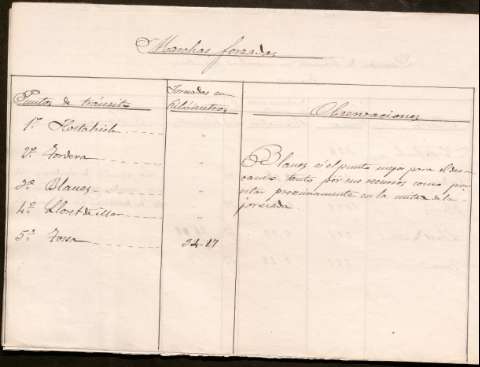 Marchas forzadas
Puntos de tránsito
Jornadas en
Kilómetros
Observaciones
1º Hostalrich
2º Tordera
3º Blanes
4º Lloret de
5º Tossa
24-17
Blanes es el punto mejor para el des-
canso tanto por sus recursos como por
estar proximamente en la mitad de la
jornada